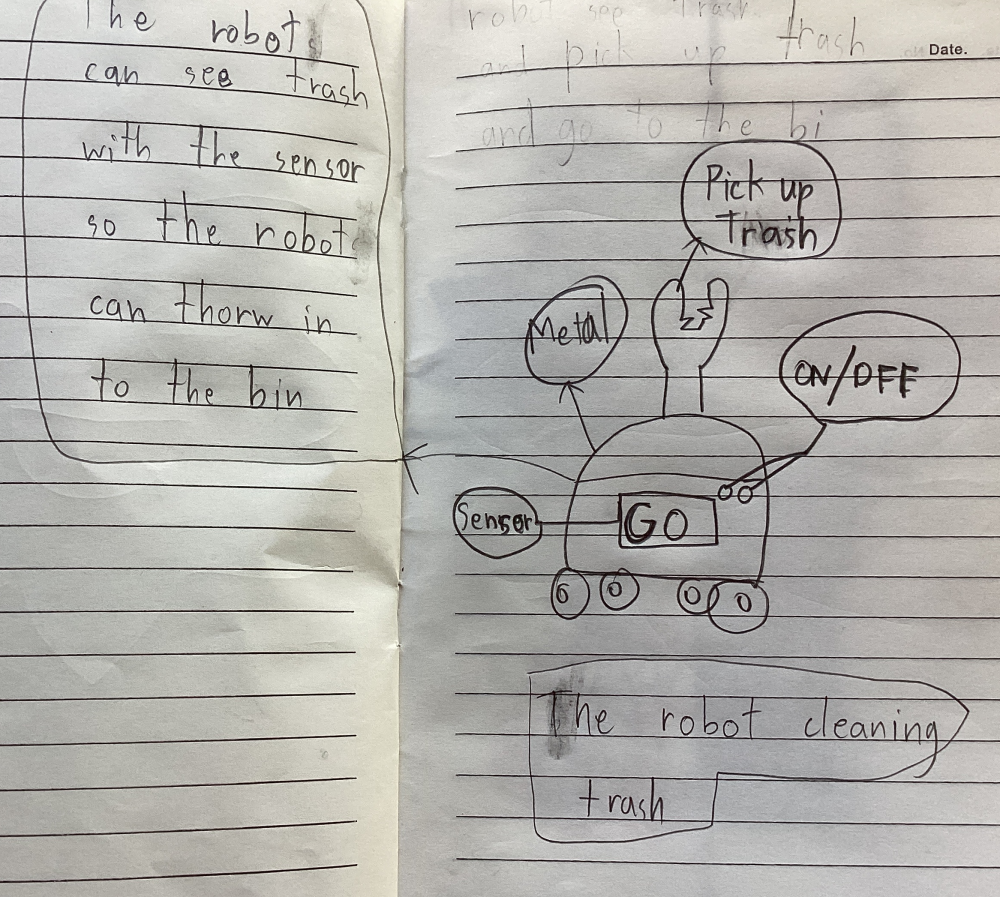 The robot
can see trash
with the sensor
so the robot
can thorw in
to the bin
robot see Trash
and pick up trash
Date.
and go to the bi
Pick up
Trash
Metal
ON/OFF
Sensor
GO
The robot cleaning
trash